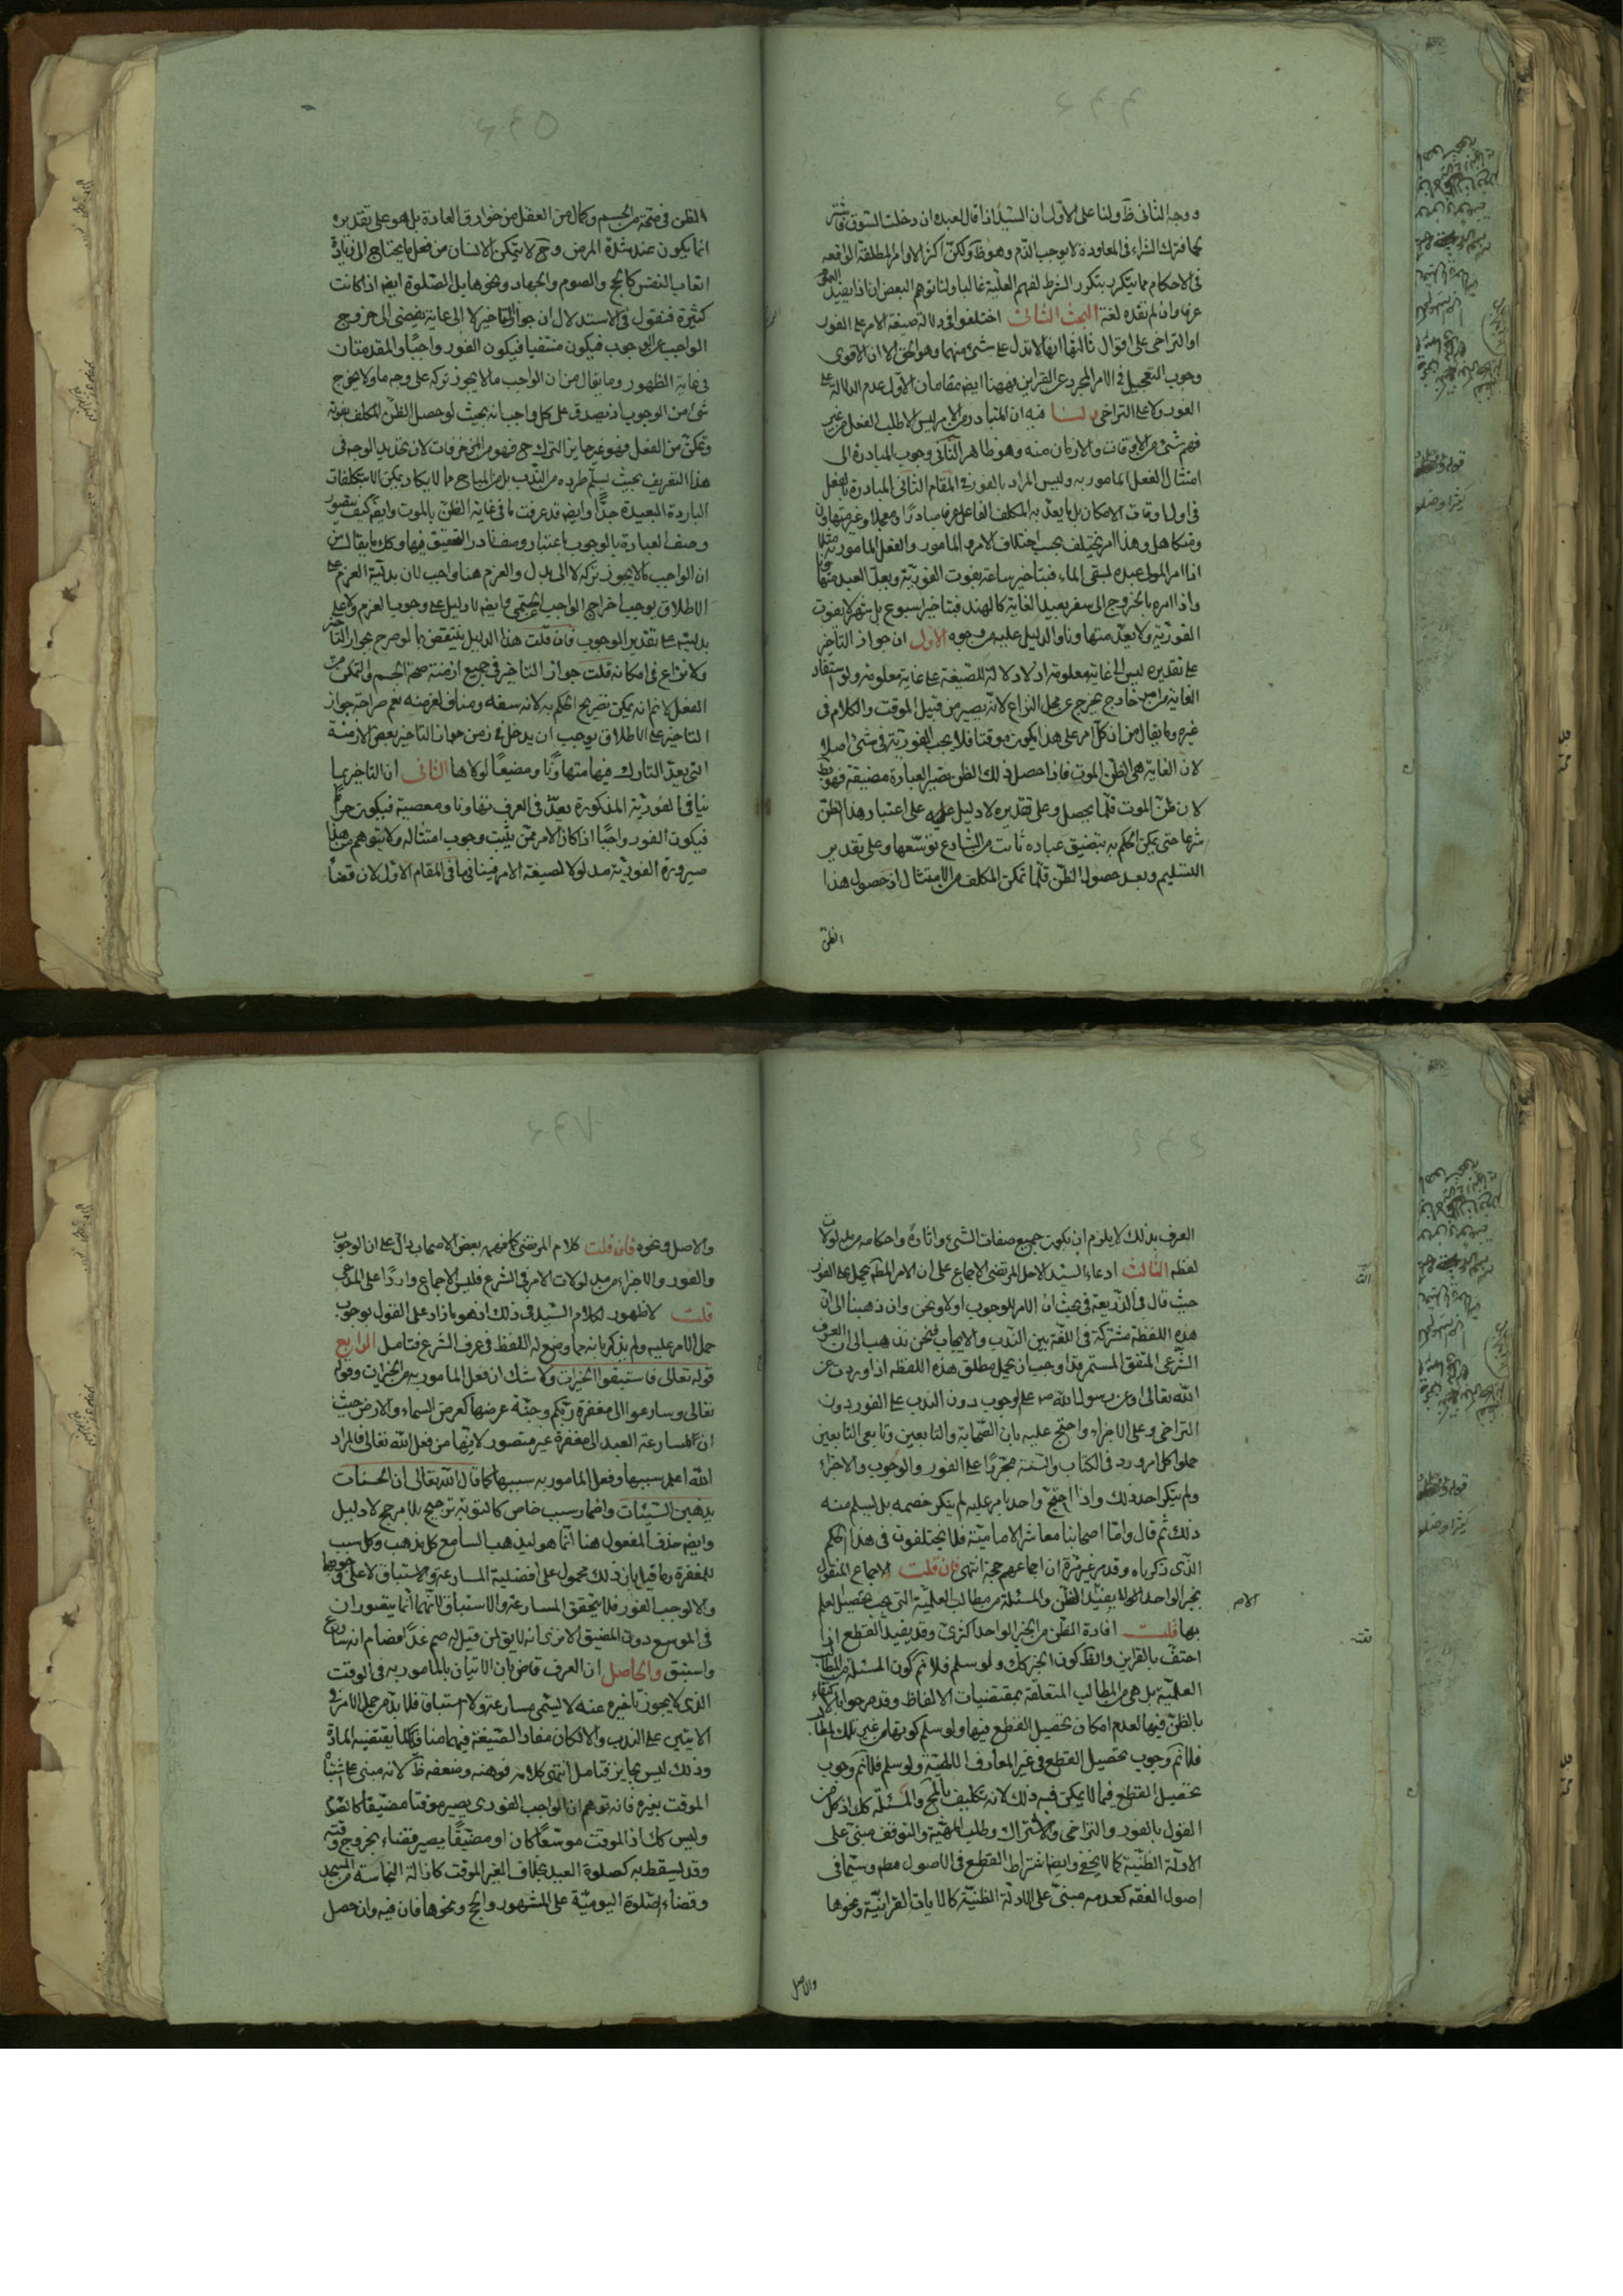 ووجه الثانى ظ ولنا على الاول ان السيد اذا قال لعبده ان دخلت السوق فاشتر
لحما فترك الشراء فى المعاودة لا يوجب الذم وهو ظ ولكن اكثر الاوامر المطلقة الواقعة
فى الاحكام مما يتكرر بتكرر الشرط لفهم العلية غالبا ولذا توهم البعض ان اذا يفيد العموم
عرفا وان لم تفده لغة البحث الثالث اختلفوا فى دلالة صيغة الامر على الفور
او التراخى على اقوال ثالثها انها لا تدل على شئ منهما وهو الحق الا ان الاقوى
وجوب التعجيل فى الامر المجرد عن القراين فههنا ايضا مقامان الاول عدم الدلالة على
الفور ولا على التراخى ولنا فيه ان المتبادر من الامر ليس الا طلب الفعل من غير
فهم شئ من الاوقات والازمان منه وهو ظاهر الثانى وجوب المبادرة الى
امتثال الفعل المامور به وليس المراد بالفور فى المقام الثانى المبادرة بالفعل
فى اول اوقات الامكان بل ما يعد به المكلف الفاعل عرفا مبادرا ومعجلا وغير متهاون
ومتكاهل وهذا امر يختلف بحسب اختلاف الامر والمامور والفعل المامور به مثلا
اذا امر المولى عبده لسقى الماء فبتاخير ساعة يفوت الفورية ويعد العبد متهاونا
واذا امره بالخروج الى سفر بعيد الغاية كالهند فبتاخير اسبوع بل شهر لا يفوت
الفورية ولا يعد متهاونا والدليل عليه من وجوه الاول ان جواز التاخير
على تقديره ليس الى غاية معلومة اذ لا دلالة للصيغة على غاية معلومة ولو استفاد
الغاية من امر خارج يخرج عن محل النزاع لانه يصير من قبيل الموقت والكلام فى
غيره وما يقال من ان كل امر على هذا يكون موقتا فلا يجب الفورية فى شئ اصلا
لان الغاية هى الظن الموت فاذا حصل ذلك الظن تصير العبارة مضيقة فهو بط
لان ظن الموت قلما يحصل وعلى تقديره لا دليل عليه على اعتبار هذا الظن
شرعا حتى يمكن الحكم به بتضيق عبادة ثابت من الشارع توسعها وعلى تقدير
التسليم وبعد حصول الظن قلما تمكن المكلف من الامتثال اذ حصول هذا
الظن
الظن فى صحة من الجسم وكمال من العقل من خوارق العادة بل هو على تقديره
انما يكون عند شدة المرض وح لا يتمكن الانسان من فعل ما يحتاج الى زيادة
اتعاب النفس كالحج والصوم والجهاد ونحوها بل الصلوة ايضا اذا كانت
كثيرة فنقول فى الاستدلال ان جواز التاخير لا الى غاية يفضى الى خروج
الواجب عن الوجوب فيكون منتفيا فيكون الفور واجبا والمقدمتان
فى غاية الظهور وما يقال من ان الواجب ما لا يجوز تركه على وجه ما ولا يخرج
شئ من الوجوب اذ يصدق على كل واجب انه بحيث لو حصل الظن المكلف بفوته
وتمكن من الفعل فهو غير جايز الترك ح فهو من المزخرفات لان تحديد الوجه فى
هذا التعريف بحيث يسلم طرده من الندب بل من المباح مما لا يكاد يمكن الا بتكلفات
الباردة البعيدة جدا وايضا قد عرفت ما فى غاية الظن بالموت وايضا كيف يتصور
وصف العبادة بالوجوب باعتبار وصف نادر التحقيق فيها وكك ما يقال من
ان الواجب ما لا يجوز تركه لا الى بدل والعزم هنا واجب لان بدلية العزم على
الاطلاق يوجب اخراج الواجب الحتمى وايضا لا دليل على وجوب العزم ولا على
بدليته على تقدير الوجوب فان قلت هذا الدليل ينتقض بما لو صرح بجواز التاخير
ولا نزاع فى امكانه قلت جواز التاخير فى جميع ازمنة صحة الجسم والتمكن من
الفعل لا نم انه يمكن تصريح الحكم به لانه سفه ومناف لغرضه نعم صراحة جواز
التاخير على الاطلاق يوجب ان يدخل فى زمن جواز التاخير بعض الازمنة
التى يعد التارك فيها متهاونا ومضيعا لولاها الثانى ان التاخير بما
ينافى الفورية المذكورة يعد فى العرف تهاونا ومعصية فيكون حراما
فيكون الفور واجبا اذا كان الامر ممن يثبت وجوب امتثاله ولا يتوهم من هذا
صيرورة الفورية مدلولا لصيغة الامر فينافى ما فى المقام الاول لان قضاء
العرف بذلك لا يلزم ان يكون جميع صفات الشئ واثاره واحكامه من مدلولات
لفظه الثالث ادعاء السيد الاجل المرتضى الاجماع على ان الامر المطلق يحمل على الفور
حيث قال فى الذريعة فى بحث ان الامر للوجوب اولا ونحن وان ذهبنا الى ان
هذه اللفظة مشتركة فى اللغة بين الندب والايجاب فنحن نذهب الى ان العرف
الشرعى المتفق المستمر قد اوجب ان يحمل مطلق هذه اللفظة اذا وردت عن
الله تعالى او عن رسول الله ص على الوجوب دون الندب على الفور دون
التراخى وعلى الاجزاء واحتج عليه بان الصحابة والتابعين وتابعى التابعين
حملوا كل امر ورد فى الكتاب والسنة مجردا على الفور والوجوب والاجزاء
ولم ينكر احد ذلك واذا احتج واحد بامر عليه لم ينكر خصمه بل يسلم منه
ذلك ثم قال واما اصحابنا معاشر الامامية فلا يختلفون فى هذا الحكم
الذى ذكرناه وقد مر غير مرة ان اجماعهم حجة انتهى فان قلت الاجماع المنقول
بخبر الواحد لا يفيد الا الظن والمسئلة من مطالب العلمية التى يجب تحصيل العلم
بها قلت افادة الظن من الخبر الواحد اكثرى وقد يفيد القطع اذا
احتف بالقراين والظ كون الخبر كك ولو سلم فلا نم كون المسئلة من المطالب
العلمية بل هى من المطالب المتعلقة بمقتضيات الالفاظ وقد مر جواز الاكتفاء
بالظن فيها لعدم امكان تحصيل القطع فيها ولو سلم كونها من غير تلك المطالب
فلا نم وجوب تحصيل القطع فى غير المعارف الالهية ولو سلم فلا نم وجوب
تحصيل القطع فيما لا يمكن فيه ذلك لانه تكليف بالمح والمسئلة كك اذ كل من
القول بالفور والتراخى والاشتراك وطلب المهية والتوقف مبنى على
الادلة الظنية كما لا يخفى وايضا اشتراط القطع فى الاصول مط وسيما فى
اصول الفقه كعدمه مبنى على الادلة الظنية كالايات القرانية ونحوها
والاصل
والاصل ونحوه فان قلت كلام المرتضى كما فهمه بعض الاصحاب دال على ان الوجوب
والفور والاجزاء من مدلولات الامر فى الشرع فليس الاجماع واردا على المدعى
قلت لا ظهور لكلام السيد فى ذلك اذ هو ما زاد على القول بوجوب
حمل الامر عليه ولم يذكر بانه مما وضع له اللفظ فى عرف الشرع فتامل الرابع
قوله تعالى فاستبقوا الخيرات ولا شك ان فعل المامور به من الخيرات وقوله
تعالى وسارعوا الى مغفرة ربكم وجنة عرضها كعرض السماء والارض حيث
ان المسارعة العبد الى مغفرة غير متصور لانها من فعل الله تعالى فالمراد
الله اعلم سببها وفعل المامور به سببها كما قال الله تعالى ان الحسنات
يذهبن السيئات واضمار سبب خاص كالتوبة ترجيح بلا مرجح لا دليل
وايضا حذف المفعول هنا انما هو ليذهب السامع كل مذهب وكل سبب
للمغفرة وما قيل بان ذلك محمول على افضلية المسارعة والاستباق لا على وجوبها
والا لوجب الفور فلا يتحقق المسارعة والاستباق لانهما انما يتصوران
فى الموسع دون المضيق الا ترى انه لا يق لمن قيل له صم غدا فصام انه سارع
واستبق والحاصل ان العرف قاض بان الاتيان بالمامور به فى الوقت
الذى لا يجوز تاخيره عنه لا يسمى مسارعة ولا استباقا فلا بد من حمل الامر فى
الايتين على الندب والا لكان مفاد الصيغة فيهما منافيا لما يقتضيه المادة
وذلك ليس بجايز فتامل انتهى كلامه فوهنه وضعفه ظ لانه مبنى على اشتباه
الموقت بغيره فانه توهم ان الواجب الفورى يصير موقتا مضيقا
وليس كك اذ الموقت موسعا كان او مضيقا يصير قضاء بخروج وقته
وقد يسقط به كصلوة العيد بخلاف الغير الموقت كازالة النجاسة من المسجد
وقضاء الصلوة اليومية على المشهور والحج ونحوها فان فيه وان حصل